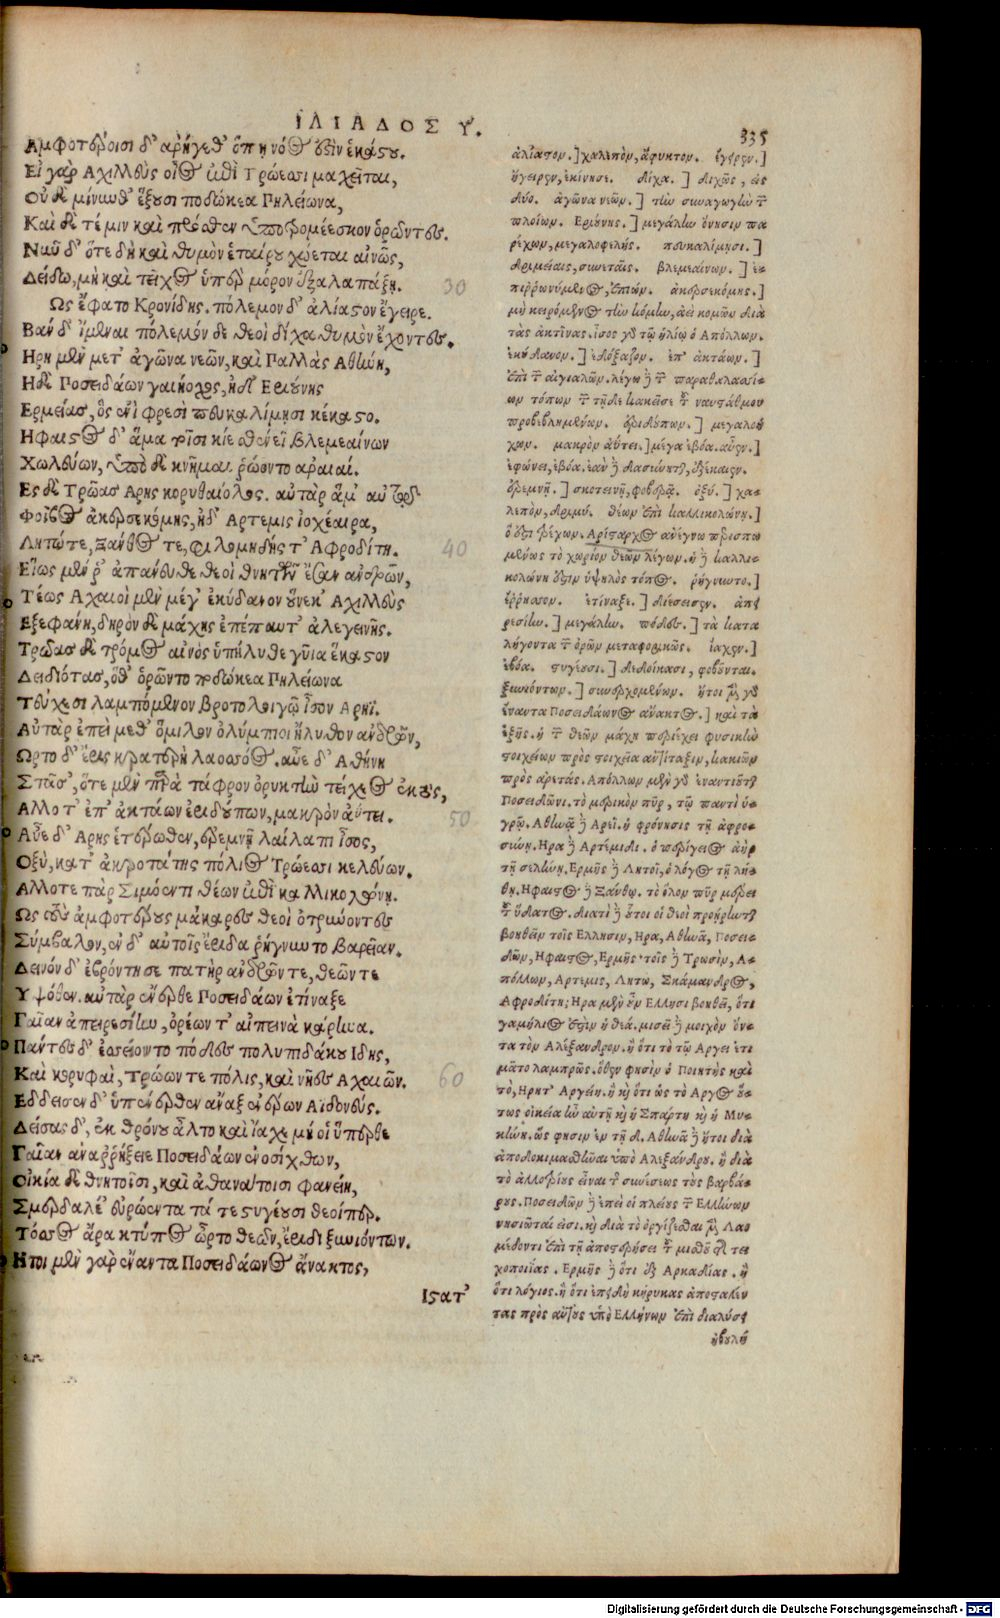 ΙΛΙΑΔΟΣ Υ.
335
Αμφοτέροισι δ' ἀρήγεθ' ὅπῃ νόος ἐστὶν ἑκάστου.
Εἰ γὰρ Αχιλλεὺς οἶος ἐπὶ Τρώεσσι μαχεῖται,
Οὐδὲ μίνυνθ' ἕξουσι ποδώκεα Πηλείωνα,
Καὶ δέ τέ μιν καὶ πρόσθεν ὑποτρομέεσκον ὁρῶντες.
Νῦν δ' ὅτε δὴ καὶ θυμὸν ἑταίρου χώεται αἰνῶς,
Δείδω, μὴ καὶ τεῖχος ὑπὲρ μόρον ἐξαλαπάξῃ.
30
Ως ἔφατο Κρονίδης. πόλεμον δ' ἀλίαστον ἔγειρε.
Βαν δ' ἴμεναι πόλεμόν δε θεοὶ δίχα θυμὸν ἔχοντες.
Ηρη μὲν μετ' ἀγῶνα νεῶν, καὶ Παλλὰς Αθήνη,
Ηδὲ Ποσειδάων γαιήοχος, ἠδ' Εριούνης
Ερμείας, ὃς ἐνὶ φρεσὶ πευκαλίμῃσι κέκαστο.
Ηφαιστος δ' ἅμα τοῖσι κίε σθένεϊ βλεμεαίνων
Χωλεύων, ὑπὸ δὲ κνῆμαι ῥώοντο ἀραιαί.
Ες δὲ Τρῶας Αρης κορυθαίολος. αὐτὰρ ἅμ' αὐτῷ
Φοῖβος ἀκερσεκόμης, ἠδ' Αρτεμις ἰοχέαιρα,
Λητώ τε, Ξάνθος τε, φιλομηδής τ' Αφροδίτη.
40
Εἵως μέν ῥ' ἀπάνευθε θεοὶ θνητῶν ἔσαν ἀνδρῶν,
Τέως Αχαιοὶ μὲν μέγ' ἐκύδανον οὕνεκ' Αχιλλεὺς
Εξεφάνη, δηρὸν δὲ μάχης ἐπέπαυτ' ἀλεγεινῆς.
Τρῶας δὲ τρόμος αἰνὸς ὑπήλυθε γῦια ἕκαστον
Δειδιότας, ὅθ' ὁρῶντο ποδώκεα Πηλείωνα
Τεύχεσι λαμπόμενον βροτολοιγῷ ἶσον Αρηϊ.
Αὐτὰρ ἐπεὶ μεθ' ὅμιλον ὀλύμπιοι ἤλυθον ἀνδρῶν,
Ωρτο δ' ἔρις κρατερὴ λαοσσόος. αὖε δ' Αθήνη
Στᾶσ', ὅτε μὲν παρὰ τάφρον ὀρυκτὴν τείχεος ἐκτὸς,
Αλλοτ' ἐπ' ἀκτάων ἐριδούπων, μακρὸν ἀΰτει.
50
Αὖε δ' Αρης ἑτέρωθεν, ἐρεμνῇ λαίλαπι ἶσος,
Οξὺ, κατ' ἀκροτάτης πόλιος Τρώεσσι κελεύων.
Αλλοτε πὰρ Σιμόεντι θέων ἐπὶ καλλικολώνῃ.
Ως τοὺς ἀμφοτέρους μάκαρες θεοὶ ὀτρύνοντες
Σύμβαλον, ἐν δ' αὐτοῖς ἔριδα ῥήγνυντο βαρεῖαν.
Δεινὸν δ' ἐβρόντησε πατὴρ ἀνδρῶντε, θεῶντε
Υψόθεν. αὐτὰρ ἔνερθε Ποσειδάων ἐτίναξε
Γαῖαν ἀπειρεσίην, ὀρέων τ' αἰπεινὰ κάρηνα.
Πάντες δ' ἐσσείοντο πόδες πολυπιδάκου Ιδης,
Καὶ κορυφαὶ, Τρώων τε πόλις, καὶ νῆες Αχαιῶν.
60
Εδδεισεν δ' ὑπένερθεν ἄναξ ἐνέρων Αϊδονεὺς.
Δείσας δ', ἐκ θρόνου ἆλτο καὶ ἴαχε μή οἱ ὕπερθε
Γαῖαν ἀναῤῥήξειε Ποσειδάων ἐνοσίχθων,
Οἰκία δὲ θνητοῖσι, καὶ ἀθανάτοισι φανείη,
Σμερδαλέ' εὐρώεντα τά τε στυγέουσι θεοί περ.
Τόσσος ἄρα κτύπος ὦρτο θεῶν, ἔριδι ξυνιόντων.
Ητοι μὲν γὰρ ἔναντα Ποσειδάωνος ἄνακτος,
Ιστατ'
ἀλίαστον.] χαλεπὸν, ἄφυκτον. ἔγειρεν.]
ἤγειρεν, ἐκίνησε. δίχα.] διχῶς, εἰς
δύο. ἀγῶνα νεῶν.] τὴν συναγωγὴν τῶν
πλοίων. Εριούνης.] μεγάλην ὄνησιν πα
ρέχων, μεγαλοφελής. πευκαλίμῃσι.]
δριμείαις, συνεταῖς. βλεμεαίνων.] ἐ-
πιῤῥωννύμενος, ἐπαιρόμενος. ἀκερσεκόμης.]
μὴ κειρόμενος τὴν κόμην, ἀεὶ κομῶν διὰ
τὰς ἀκτῖνας. ἶσος γὰρ τῷ ἡλίῳ ὁ Απόλλων.
ἐκύδανον.] ἐδόξαζον. ἐπ' ἀκτάων.]
ἐπὶ τῶν αἰγιαλῶν. λέγει δὲ τῶν παραθαλασσί-
ων τόπων τῶν τῇδε κἀκεῖσε τοῦ ναυστάθμου
προβεβλημένων. ἐριδούπων.] μεγαλοή
χων. μακρὸν ἀΰτει.] μέγα ἐβόα. αὖεν.]
ἐφώνει, ἐβόα. ἐὰν δὲ δασύνηται, ἐξέκαιεν.
ἐρεμνῇ.] σκοτεινῇ, φοβερᾷ. ὀξύ.] χα-
λεπὸν, δριμύ. θέων ἐπὶ καλλικολώνῃ.]
ὁ ὀξὺ τρέχων. Αρίσταρχος ἀνέγνω περισπω
μένως τὸ χωρίον θεῶν λέγων. ἡ δὲ καλλι-
κολώνη ἐστὶν ὑψηλὸς τόπος. ῥήγνυντο.]
ἔῤῥησσον. ἐτίναξε.] διέσεισεν. ἀπει
ρεσίην.] μεγάλην. πόδες.] τὰ κατα
λήγοντα τῶν ὀρῶν μεταφορικῶς. ἴαχεν.]
ἐβόα. στυγέουσι.] δεδοίκασι, φοβοῦνται.
ξυνιόντων.] συνερχομένων. ἤτοι μὲν γὰρ
ἔναντα Ποσειδάωνος ἄνακτος.] καὶ τὰ
ἑξῆς. ἡ τῶν θεῶν μάχη περιέχει φυσικὴν
στοιχείων πρὸς στοιχεῖα ἀντίταξιν, κακιῶν
πρὸς ἀρετάς. Απόλλων μὲν γὰρ ἐναντιοῦται
Ποσειδῶνι. τὸ μερικὸν πῦρ, τῷ παντὶ ὑ-
γρῷ. Αθηνᾶ δὲ Αρεϊ. ἡ φρόνησις τῇ ἀφρο-
σύνῃ. Ηρα δὲ Αρτέμιδι. ὁ περίγειος ἀὴρ
τῇ σελήνῃ. Ερμῆς δὲ Λητοῖ, ὁ λόγος τῇ λή-
θῃ. Ηφαιστος δὲ Ξάνθῳ. τὸ ὅλον πῦρ μέρει
τοῦ ὕδατος. διατί δὲ οὗτοι οἱ θεοὶ προῄρηνται
βοηθεῖν τοῖς Ελλησιν, Ηρα, Αθηνᾶ, Ποσει-
δῶν, Ηφαιστος, Ερμῆς· τοῖς δὲ Τρωσὶν, Α-
πόλλων, Αρτεμις, Λητὼ, Σκάμανδρος,
Αφροδίτη; Ηρα μὲν οὖν Ελλησι βοηθεῖ, ὅτι
γαμήλιός ἐστιν ἡ θεά. μισεῖ δὲ μοιχὸν ὄν-
τα τὸν Αλέξανδρον. ἢ ὅτι τὸ τῷ Αργει ἐτι
μᾶτο λαμπρῶς. ὅθεν φησὶν ὁ Ποιητὴς καὶ
τὸ, Ηρητ' Αργείη. ἢ καὶ ὅτι ὡς τὸ Αργος οὕ-
τως οἰκεία ἦν αὐτῇ καὶ ἡ Σπάρτη καὶ ἡ Μυ-
κήνη. ὥς φησιν ἐν τῇ δ. Αθηνᾶ δὲ ἤτοι διὰ
ἀποδοκιμασθῆναι ὑπὸ Αλεξάνδρου. ἢ διὰ
τὸ ἀλλοτρίους εἶναι τῆς συνέσεως τοὺς βαρβά-
ρους. Ποσειδῶν δὲ ἐπεὶ οἱ πλείους τῶν Ελλήνων
νησιῶταί εἰσι. καὶ διὰ τὸ ὀργίζεσθαι μὲν Λαο
μέδοντι ἐπὶ τῇ ἀποστερήσει τοῦ μισθοῦ τῆς τει
χοποιΐας. Ερμῆς δὲ ὅτι ἐξ Αρκαδίας. ἢ
ὅτι λόγιος. ἢ ὅτι ἐπειδὴ κήρυκας ἀποσταλέν
τας πρὸς αὐτοὺς ὑπὸ Ελλήνων ἐπὶ διαλύσει
ἠβουλή
Digitalisierung gefördert durch die Deutsche Forschungsgemeinschaft - DFG